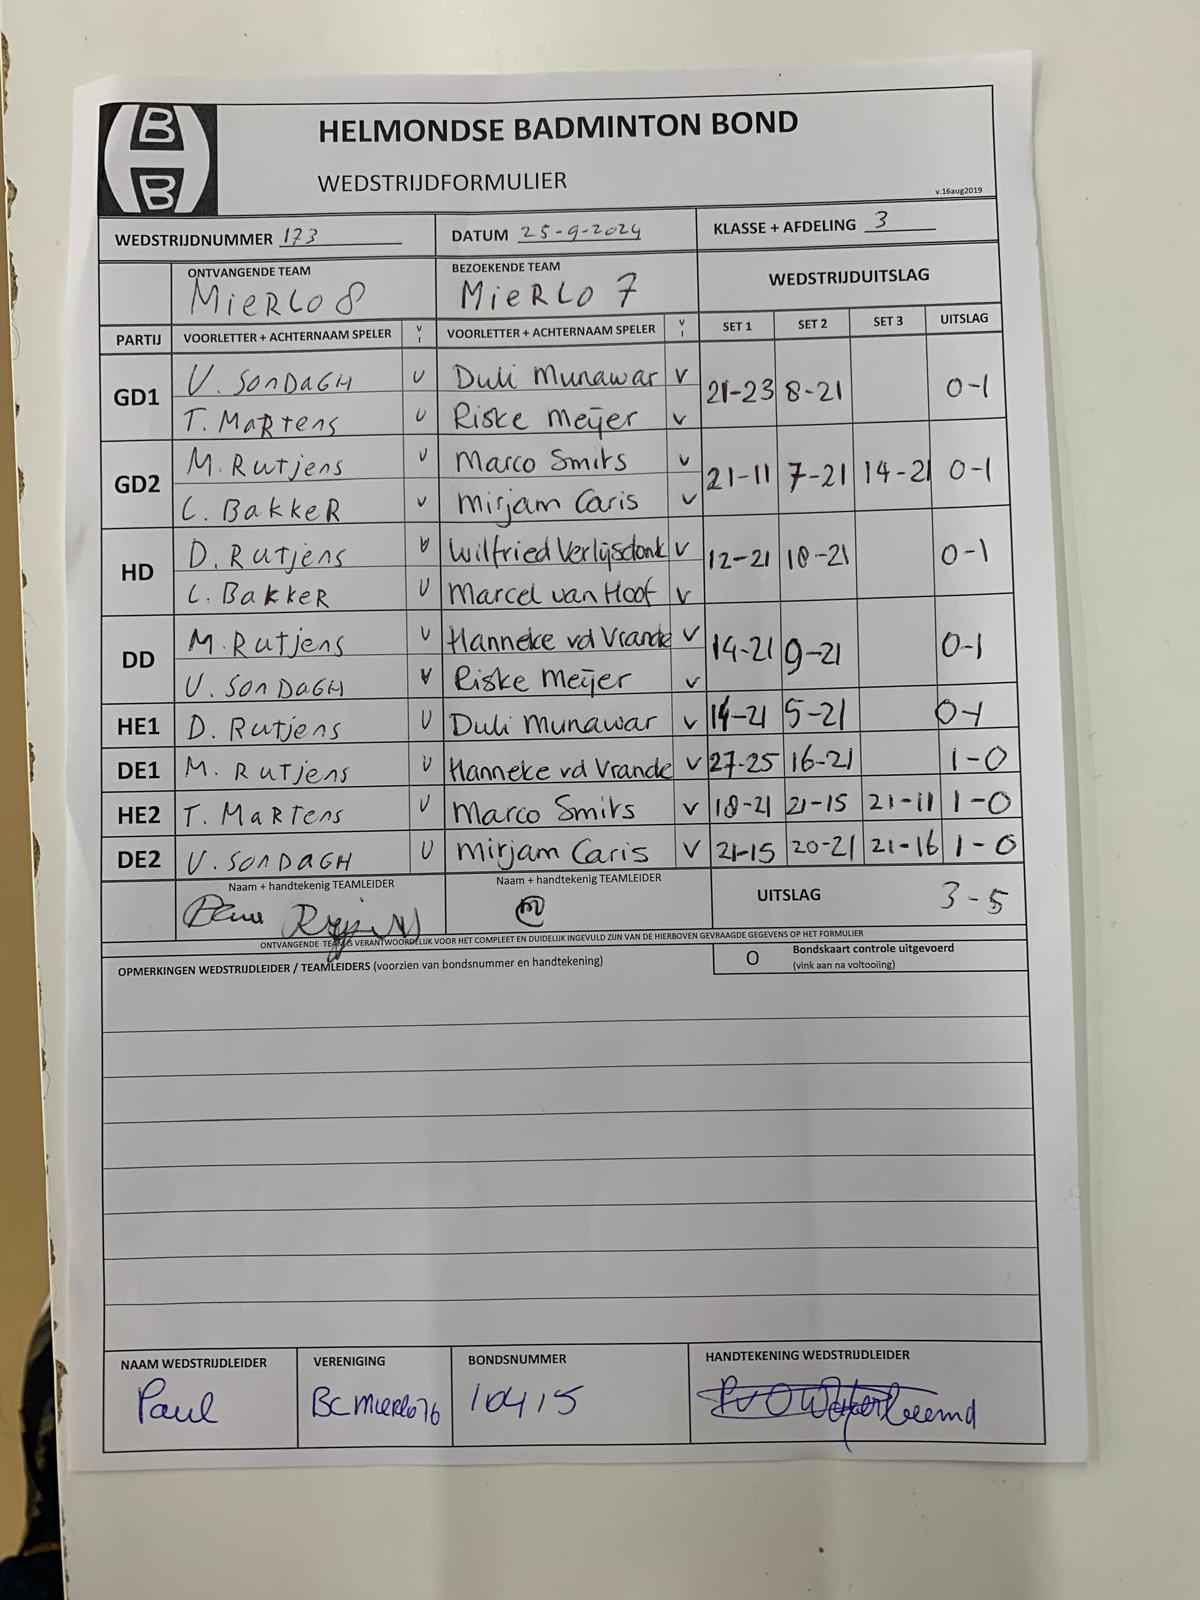 B
B
HELMONDSE BADMINTON BOND
WEDSTRIJDFORMULIER
v.16aug2019
WEDSTRIJDNUMMER 173 DATUM 25-9-2024 KLASSE + AFDELING 3
ONTVANGENDE TEAM BEZOEKENDE TEAM WEDSTRIJDUITSLAG
MIERLO 8 MIERLO 7
PARTIJ VOORLETTER + ACHTERNAAM SPELER V I VOORLETTER + ACHTERNAAM SPELER V I SET 1 SET 2 SET 3 UITSLAG
GD1 V. SONDAGH V Duli Munawar V 21-23 8-21 0-1
T. Martens V Riske Meijer V
GD2 M. Rutjens V Marco Smits V 21-11 7-21 14-21 0-1
C. Bakker V Mirjam Caris V
HD D. Rutjens V Wilfried Verlijsdonk V 12-21 18-21 0-1
C. Bakker V Marcel van Hoof V
DD M. Rutjens V Hanneke vd Vrande V 14-21 9-21 0-1
V. SONDAGH V Riske Meijer V
HE1 D. Rutjens V Duli Munawar V 14-21 5-21 0-1
DE1 M. Rutjens V Hanneke vd Vrande V 27-25 16-21 1-0
HE2 T. Martens V Marco Smits V 18-21 21-15 21-11 1-0
DE2 V. SONDAGH V Mirjam Caris V 21-15 20-21 21-16 1-0
Naam + handtekenig TEAMLEIDER Naam + handtekenig TEAMLEIDER UITSLAG 3-5
ONTVANGENDE TEAM IS VERANTWOORDELIJK VOOR HET COMPLEET EN DUIDELIJK INGEVULD ZIJN VAN DE HIERBOVEN GEVRAAGDE GEGEVENS OP HET FORMULIER
OPMERKINGEN WEDSTRIJDLEIDER / TEAMLEIDERS (voorzien van bondsnummer en handtekening) O Bondskaart controle uitgevoerd
(vink aan na voltooiing)
NAAM WEDSTRIJDLEIDER VERENIGING BONDSNUMMER HANDTEKENING WEDSTRIJDLEIDER
Paul BC Mierlo 76 10415